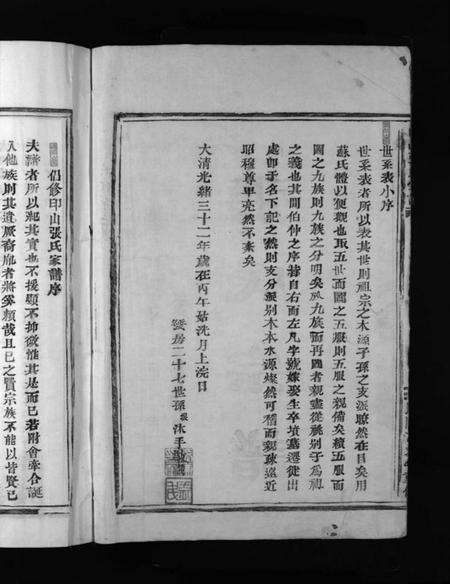 世系表小序
世系表者所以表其世則祖宗之本源子孫之支派瞭然在目矣用
蘇氏體以便觀也取五世而圖之五服則五服之親備矣積五服而
圖之九族則九族之分明矣於九族而再圖者親盡從祧别子為祖
之義也其間伯仲之序皆自右而左凡字號嫁娶生卒墳墓遷徙出
處即于名下記之然則支分派别木本水源燦然可稽而親疎遠近
昭穆尊卑亮然不紊矣
大清光緒三十二年歲在丙午姑洗月上浣日
二十七世孫 沐手敬
仍修印山張氏家譜序
夫譜者所以紀其實也不援顯不抑微惟其是而已若附會牽合誕
入他族則其遺服裔胤者將奚賴哉且已之賢宗族不能以皆賢已